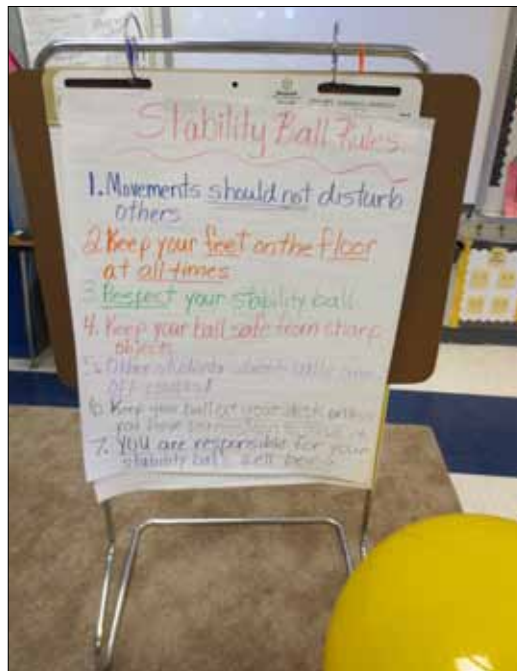 Stability Ball Rules
1. Movements should not disturb
others
2. Keep your feet on the floor
at all times
3. Respect your stability ball
4. Keep your ball safe from sharp
objects
5. Other students
6. Keep your ball at your desk unless
you have
7. You are responsible for your
stability ball well being